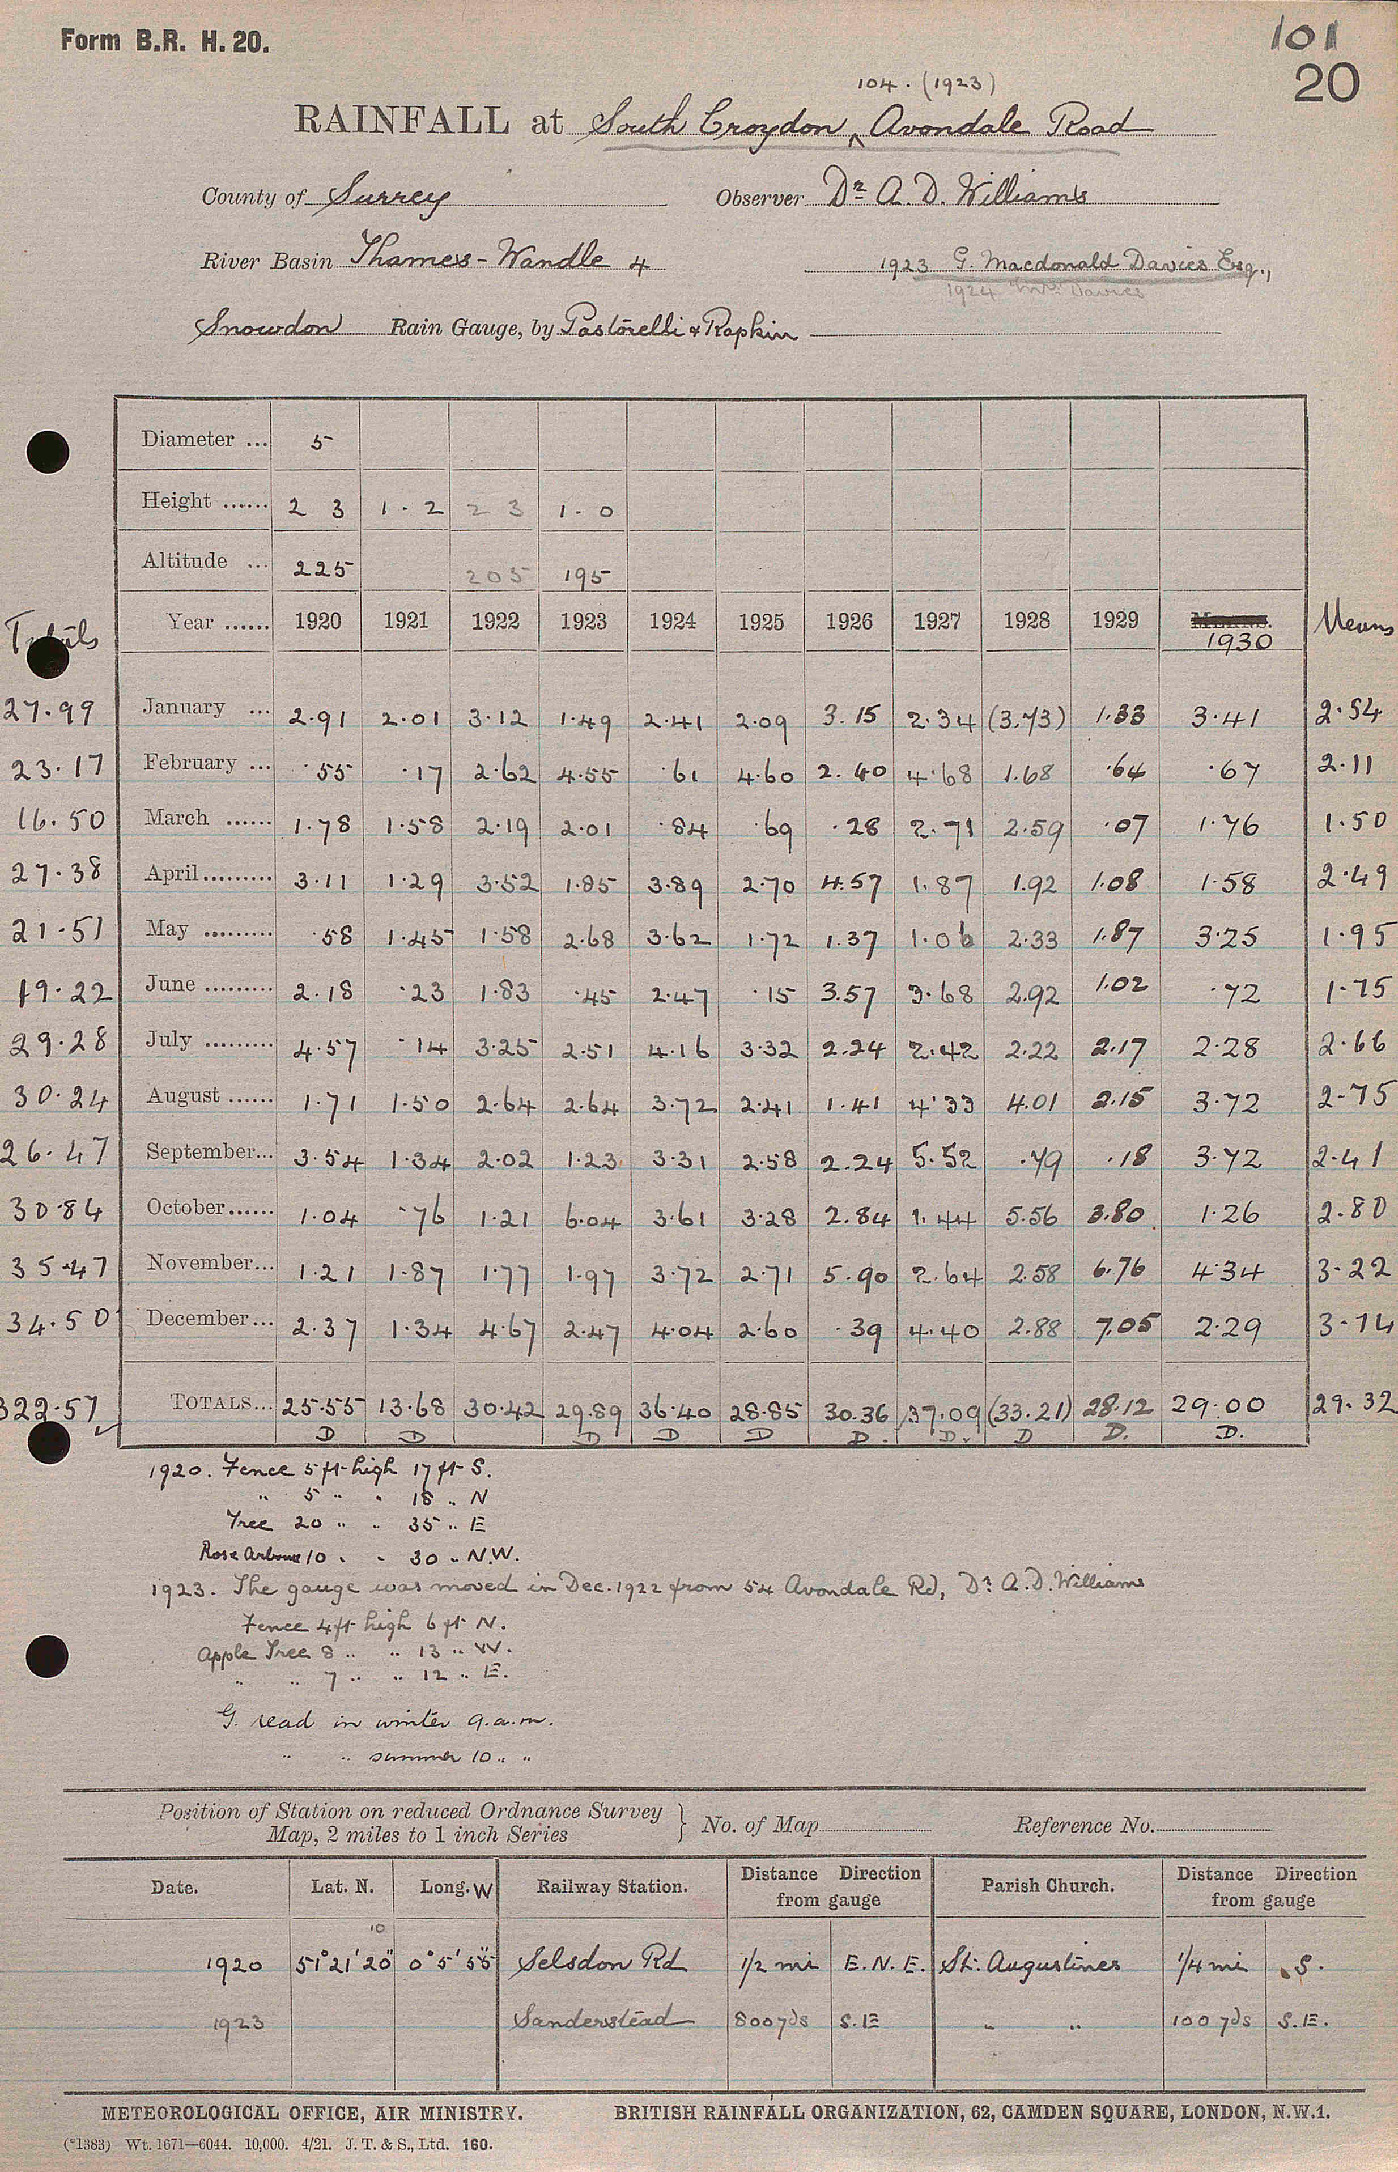 Form B.R. H. 20.
101
20
104. (1923)
RAINFALL at South Croydon ^ Avondale Road
County of Surrey Observer Dr A. D. Williams
River Basin Thames - Wandle 4 1923 G. Macdonald Davies Esq.,
1924 Mrs Davies
Snowdon Rain Gauge, by Pastorelli & Rapkin
Diameter ... 5
Height ...... 2 3 1 - 2 2 3 1 - 0
Altitude ... 225 205 195
Totals Year ...... 1920 1921 1922 1923 1924 1925 1926 1927 1928 1929 1930 Means
27.99 January ... 2.91 2.01 3.12 1.49 2.41 2.09 3.15 2.34 (3.73) 1.33 3.41 2.54
23.17 February ... .55 .17 2.62 4.55 .61 4.60 2.40 4.68 1.68 .64 .67 2.11
16.50 March ...... 1.78 1.58 2.19 2.01 .84 .69 .28 2.71 2.59 .07 1.76 1.50
27.38 April ......... 3.11 1.29 3.52 1.85 3.89 2.70 4.57 1.87 1.92 1.08 1.58 2.49
21.51 May ......... .58 1.45 1.58 2.68 3.62 1.72 1.37 1.06 2.33 1.87 3.25 1.95
19.22 June ......... 2.18 .23 1.83 .45 2.47 .15 3.57 3.68 2.92 1.02 .72 1.75
29.28 July ......... 4.57 .14 3.25 2.51 4.16 3.32 2.24 2.42 2.22 2.17 2.28 2.66
30.24 August ...... 1.71 1.50 2.64 2.64 3.72 2.41 1.41 4.33 4.01 2.15 3.72 2.75
26.47 September... 3.54 1.34 2.02 1.23 3.31 2.58 2.24 5.52 .79 .18 3.72 2.41
30.84 October...... 1.04 .76 1.21 6.04 3.61 3.28 2.84 1.44 5.56 3.80 1.26 2.80
35.47 November... 1.21 1.87 1.77 1.97 3.72 2.71 5.90 2.64 2.58 6.76 4.34 3.22
34.50 December... 2.37 1.34 4.67 2.47 4.04 2.60 .39 4.40 2.88 7.05 2.29 3.14
322.57 TOTALS... 25.55 13.68 30.42 29.89 36.40 28.85 30.36 37.09 (33.21) 28.12 29.00 29.32
D D D D D D. D. D D. D.
1920. Fence 5 ft high 17 ft S.
" 5 " " 18 " N
Tree 20 " " 35 " E
Rose Arbour 10 " " 30 " N.W.
1923. The gauge was moved in Dec. 1922 from 54 Avondale Rd, Dr A.D. Williams
Fence 4 ft high 6 ft N.
Apple Tree 8 " " 13 " W.
" " 7 " " 12 " E.
G. read in winter 9.a.m.
" " summer 10 " "
Position of Station on reduced Ordnance Survey Map, 2 miles to 1 inch Series } No. of Map Reference No.
Date. Lat. N. Long. W Railway Station. Distance Direction from gauge Parish Church. Distance Direction from gauge
10
1920 51° 21' 20" 0° 5' 55" Selsdon Rd 1/2 mi E.N.E. St. Augustines 1/4 mi S.
1923 Sanderstead 800 yds S.E " " 100 yds S.E.
METEOROLOGICAL OFFICE, AIR MINISTRY. BRITISH RAINFALL ORGANIZATION, 62, CAMDEN SQUARE, LONDON, N.W.1.
(*1383) Wt. 1671—6044. 10,000. 4/21. J. T. & S., Ltd. 160.